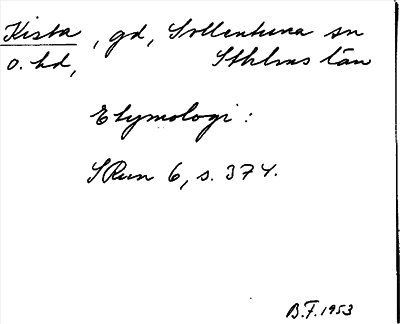 Kista, gd, Sollentuna sn
o. hd, Sthlms län
Etymologi:
SRun 6, s. 374.
B.F. 1953